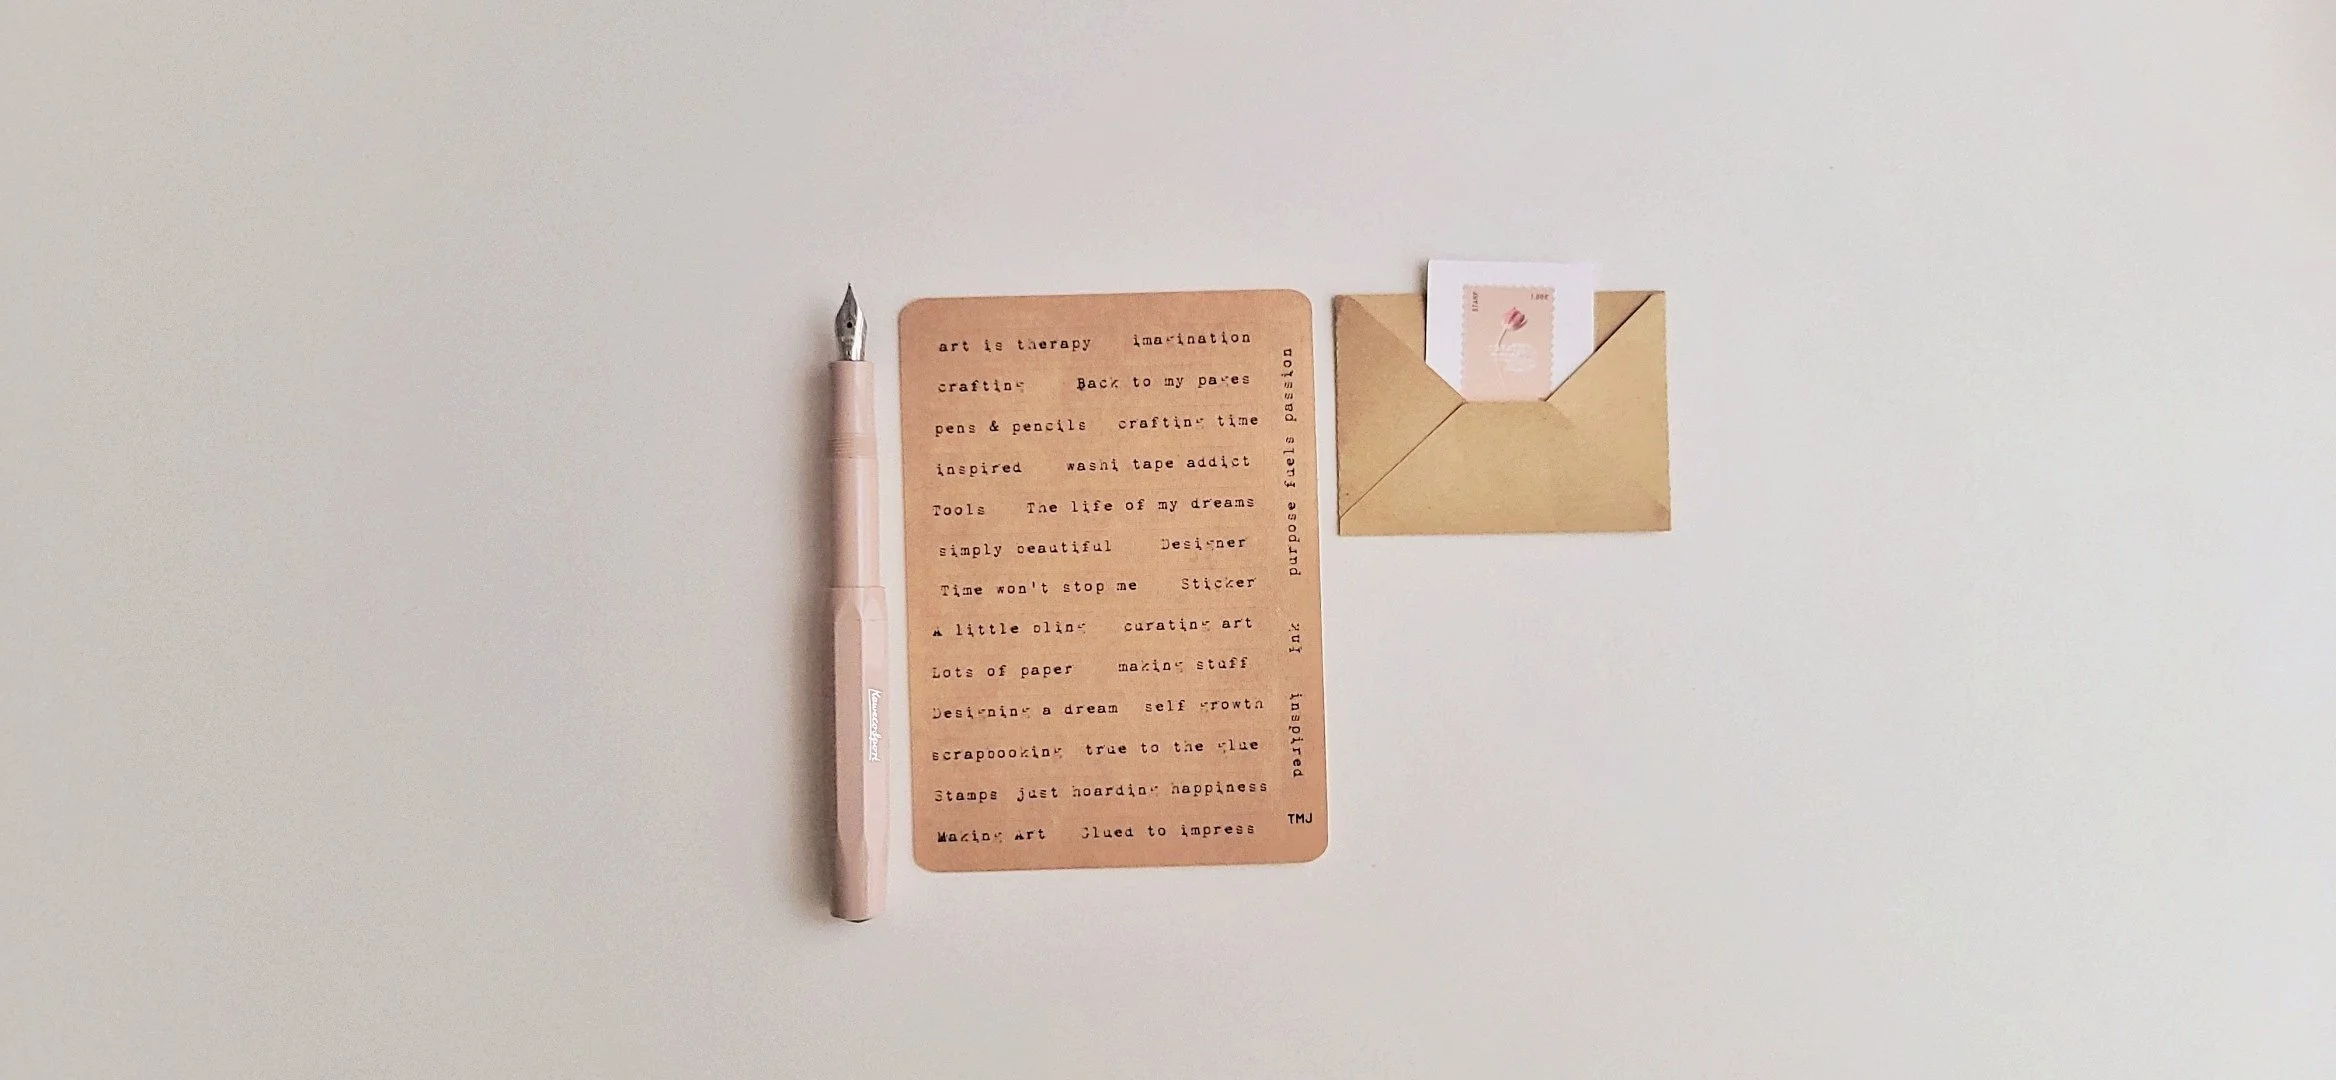 art is therapy imagination
crafting Back to my pages
pens & pencils crafting time
inspired washi tape addict
Tools The life of my dreams
simply beautiful Designer
Time won't stop me Sticker
A little bling curating art
Lots of paper making stuff
Designing a dream self growth
scrapbooking true to the glue
Stamps just hoarding happiness
Making Art Glued to impress
purpose fuels passion
ink
inspired
TMJ
Kaweco Sport
STAMP
1.00€